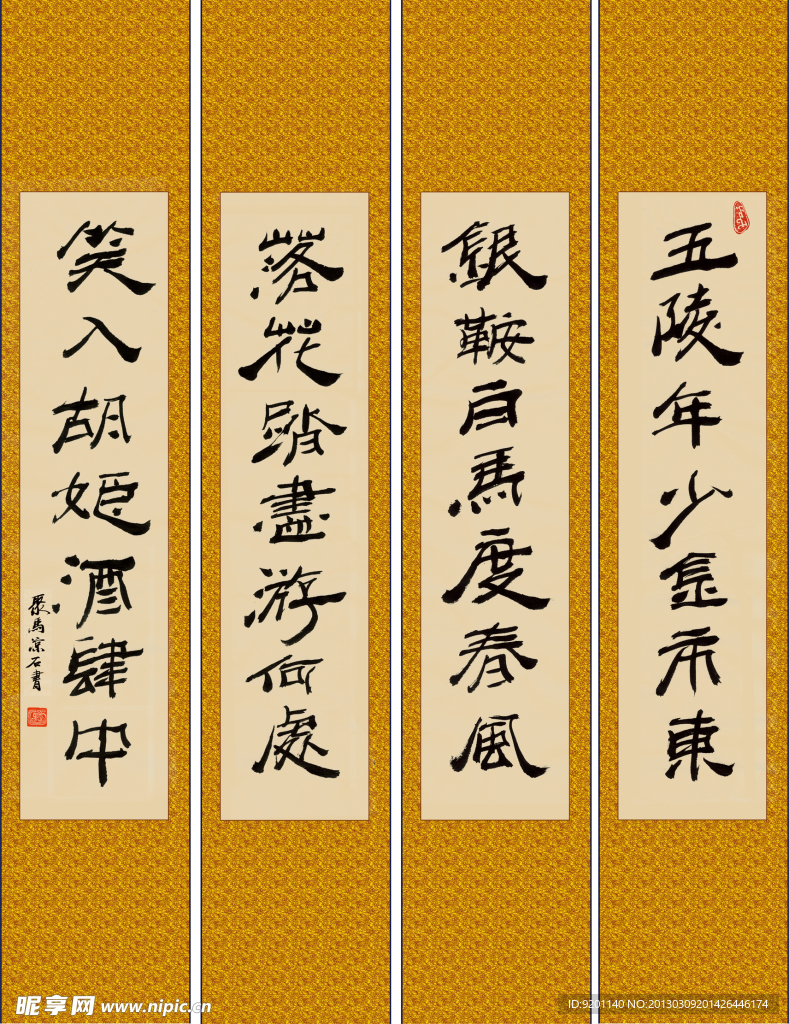 五陵年少金市東
銀鞍白馬度春風
落花踏盡游何處
笑入胡姬酒肆中
石書
昵享网 www.nipic.cn
ID:9201140 NO:20130309201426446174